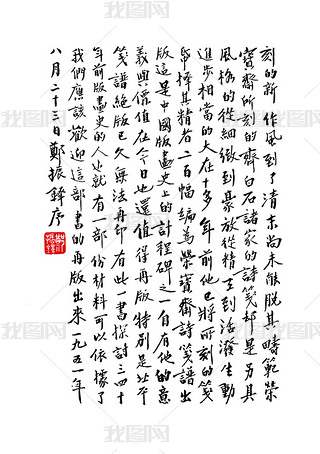 刻的新作風到了清末尚未能脱其疇範榮
寶齋所刻的齊白石諸家的詩箋却是另具
風格的從細緻到豪放從精工到活潑生動
進步相當的大在十多年前他已將所刻的箋
帋擇其精者二百幅編為榮寶齋詩箋譜出
版這是中國版畫史上的計程碑之一自有他的意
義與價值在今日也還值得再版特别是北平
箋譜絶版已久無法再印有此一書探討三四十
年前版畫史的人也就有一部份材料可以依據了
我們應該歡迎這部書的再版出來一九五一年
八月二十三日鄭振鐸序